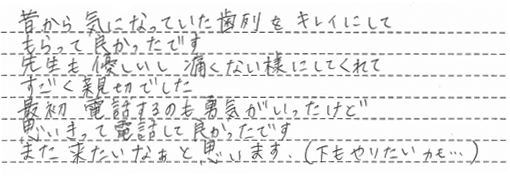 昔から気になっていた歯列をキレイにして
もらって良かったです
先生も優しいし痛くない様にしてくれて
すごく親切でした
最初電話するのも勇気がいったけど
思いきって電話して良かったです
また来たいなぁと思います.(下もやりたいカモ…)